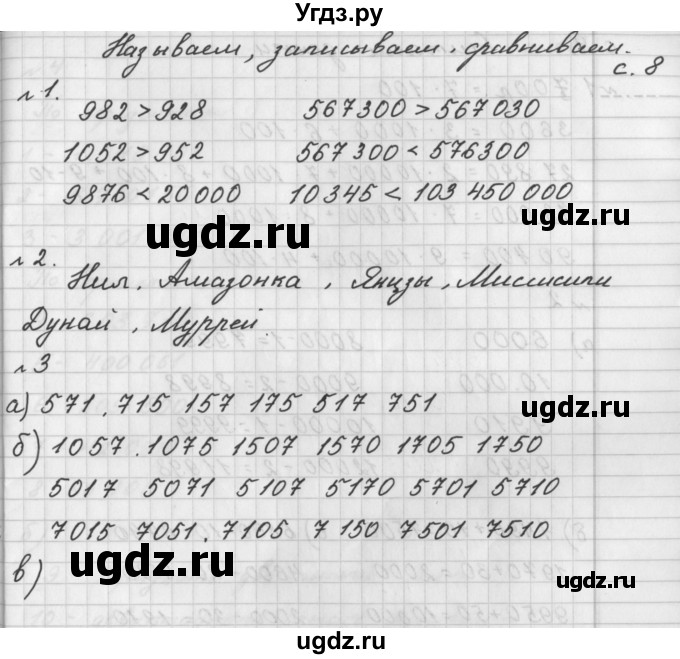 Угдз.ру
Называем, записываем, сравниваем.
с. 8
№1.
982 > 928 567300 > 567030
1052 > 952 567300 < 576300
9876 < 20000 10345 < 103450000
ugdz.ru
ugdz.ru
№2.
Нил, Амазонка, Янцзы, Миссисипи
Дунай, Муррей
№3
а) 571, 715 157 175 517 751
ugdz.ru
б) 1057, 1075 1507 1570 1705 1750
5017 5071 5107 5170 5701 5710
7015, 7051, 7105 7150 7501 7510
в)
ugdz.ru
ugdz.ru
ugdz.ru